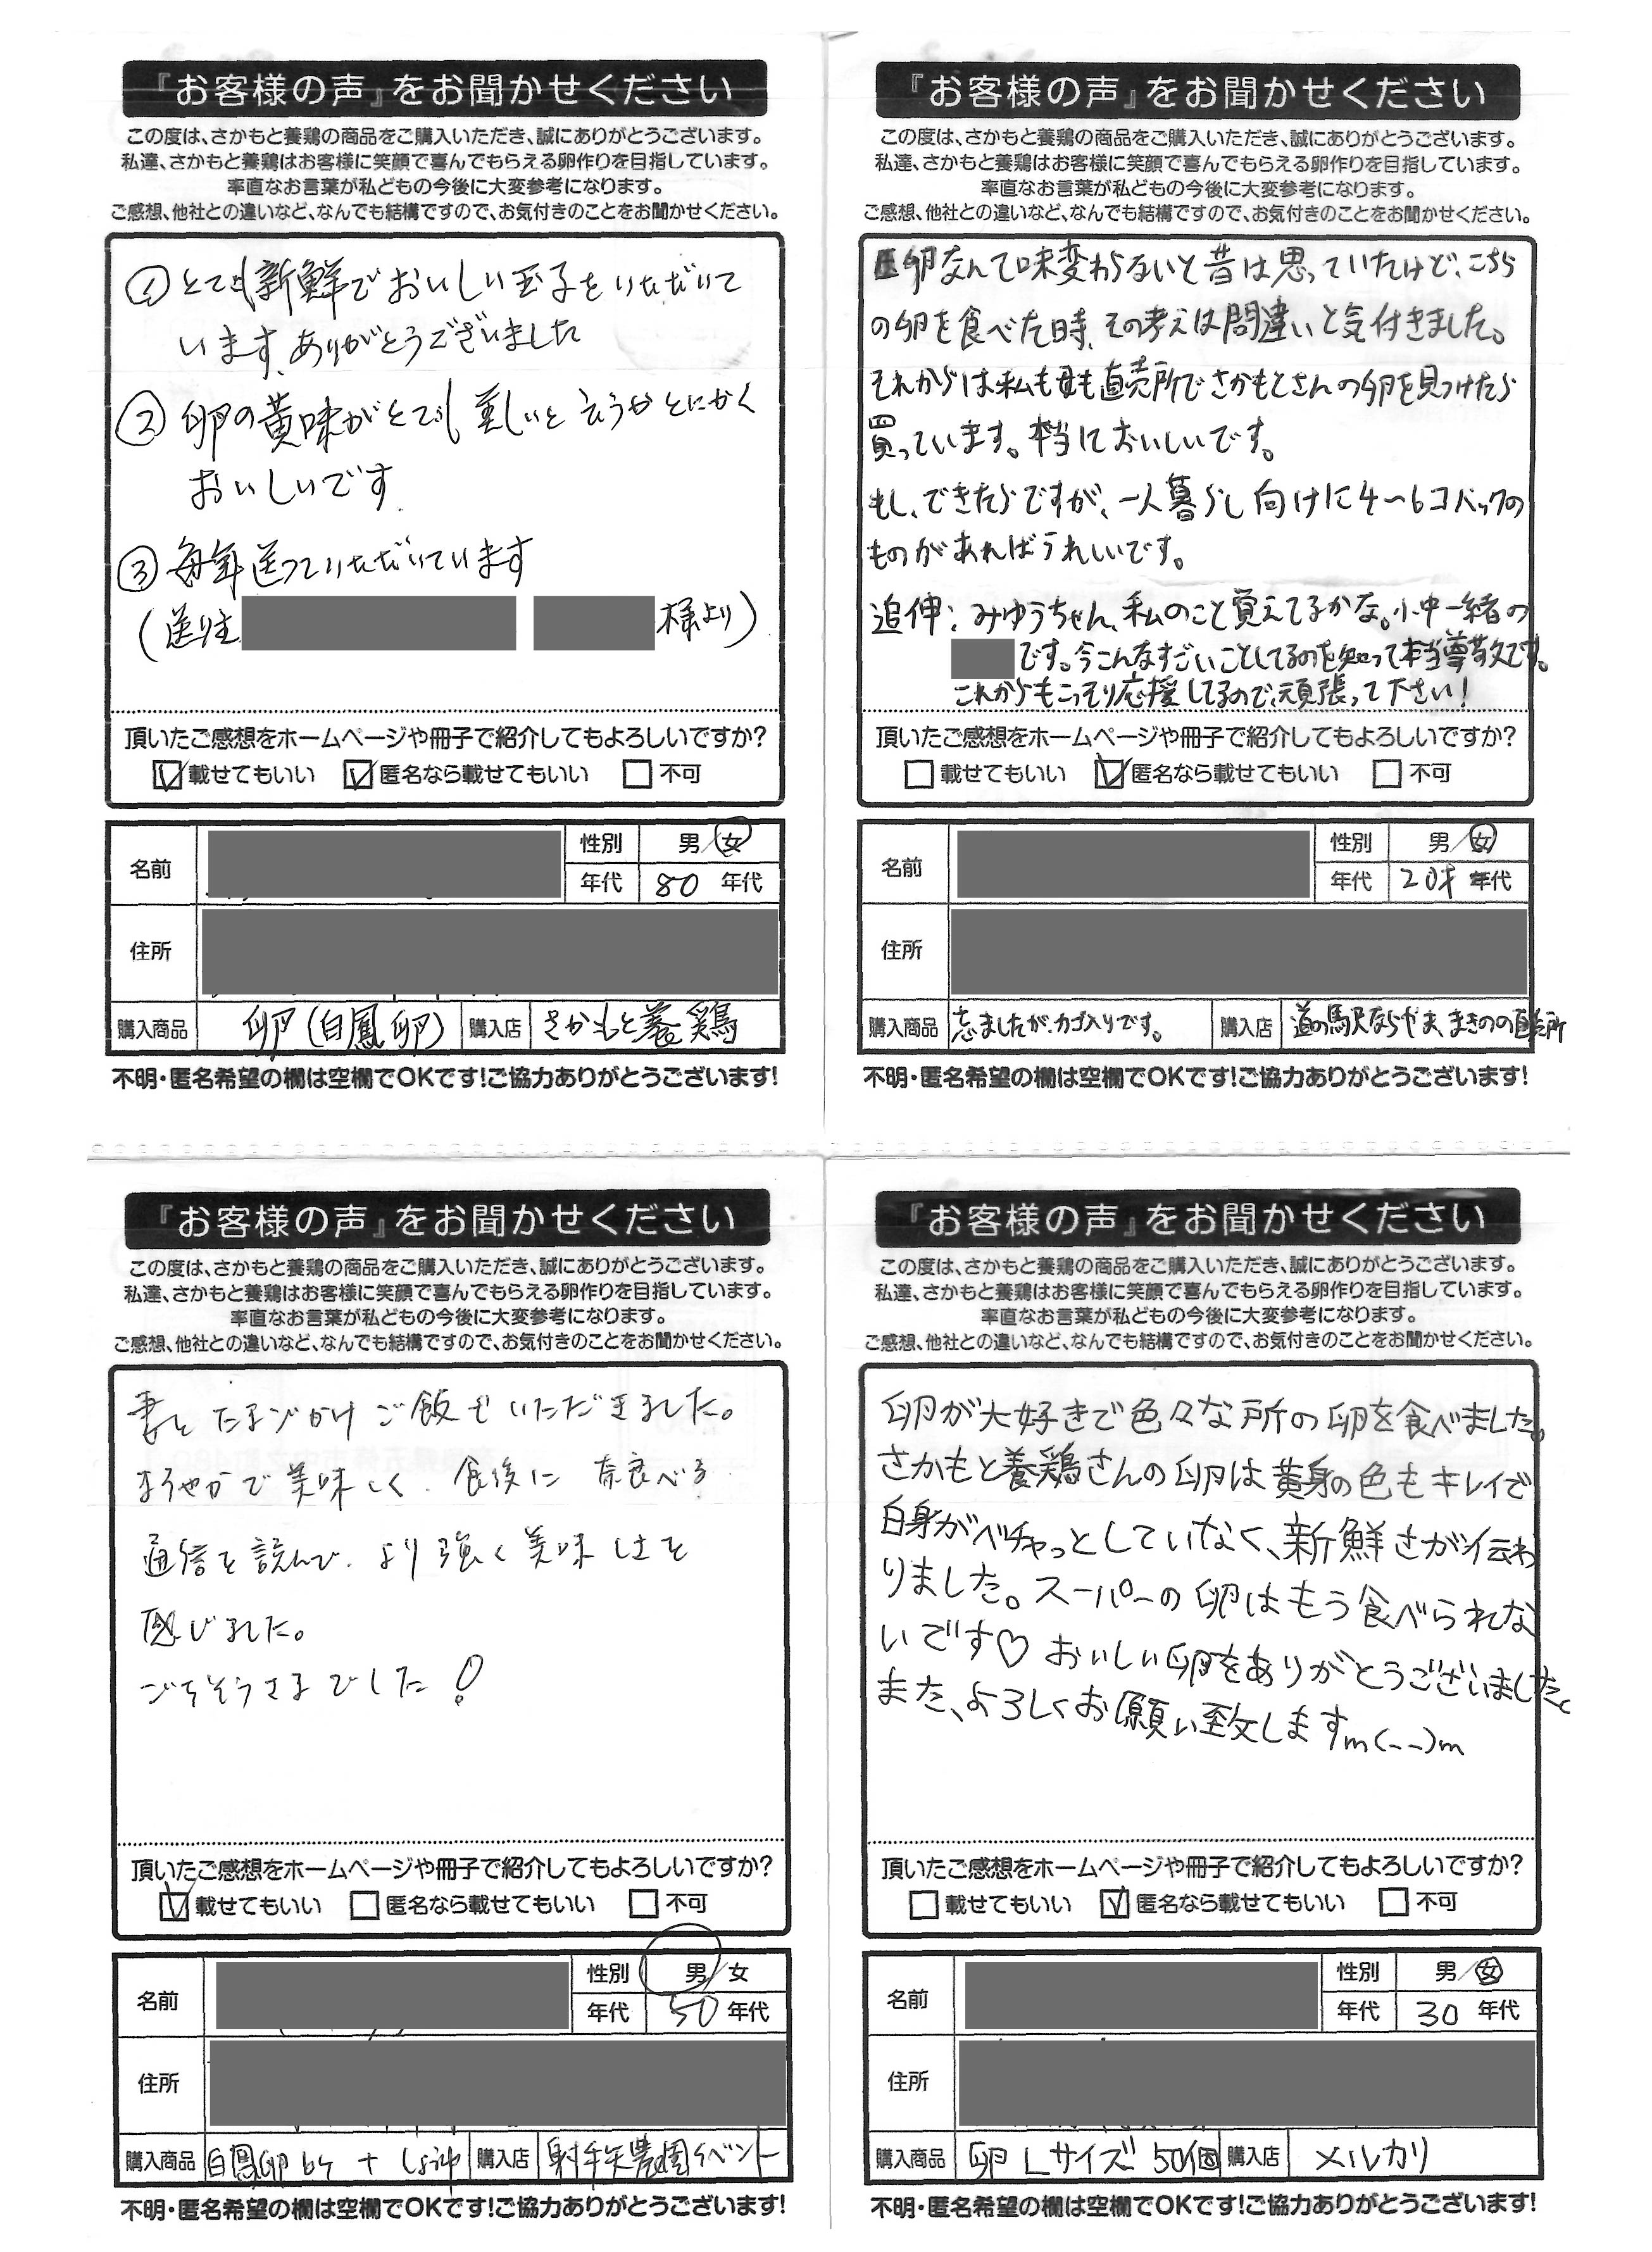 『お客様の声』をお聞かせください
この度は、さかもと養鶏の商品をご購入いただき、誠にありがとうございます。
私達、さかもと養鶏はお客様に笑顔で喜んでもらえる卵作りを目指しています。
率直なお言葉が私どもの今後に大変参考になります。
ご感想、他社との違いなど、なんでも結構ですので、お気付きのことをお聞かせください。
①とても新鮮でおいしい玉子をいただいて
います、ありがとうございました
②卵の黄味がとても美しいと言うかとにかく
おいしいです
③毎年送っていただいています
(送り主 様より)
頂いたご感想をホームページや冊子で紹介してもよろしいですか?
載せてもいい 匿名なら載せてもいい 不可
名前 性別 男/女
年代 80 年代
住所
購入商品 卵(白鳳卵) 購入店 さかもと養鶏
不明・匿名希望の欄は空欄でOKです!ご協力ありがとうございます!
『お客様の声』をお聞かせください
この度は、さかもと養鶏の商品をご購入いただき、誠にありがとうございます。
私達、さかもと養鶏はお客様に笑顔で喜んでもらえる卵作りを目指しています。
率直なお言葉が私どもの今後に大変参考になります。
ご感想、他社との違いなど、なんでも結構ですので、お気付きのことをお聞かせください。
卵なんて味変わらないと昔は思っていたけど、こちら
の卵を食べた時、その考えは間違いと気付きました。
それからは私も母も直売所でさかもとさんの卵を見つけたら
買っています。本当においしいです。
もし、できたらですが、一人暮らし向けに4〜6コパックの
ものがあればうれしいです。
追伸:みゆうちゃん、私のこと覚えてるかな。小中一緒の
です。今こんなすごいことしてるのを知って本当尊敬です。
これからもこっそり応援してるので、頑張って下さい!
頂いたご感想をホームページや冊子で紹介してもよろしいですか?
載せてもいい 匿名なら載せてもいい 不可
名前 性別 男/女
年代 20才 年代
住所
購入商品 忘ましたが、カゴ入りです。 購入店 道の駅ならやま、まきのの直売所
不明・匿名希望の欄は空欄でOKです!ご協力ありがとうございます!
『お客様の声』をお聞かせください
この度は、さかもと養鶏の商品をご購入いただき、誠にありがとうございます。
私達、さかもと養鶏はお客様に笑顔で喜んでもらえる卵作りを目指しています。
率直なお言葉が私どもの今後に大変参考になります。
ご感想、他社との違いなど、なんでも結構ですので、お気付きのことをお聞かせください。
妻とたまごかけご飯でいただきました。
まろやかで美味しく、食後に奈良べる
通信を読んで、より強く美味しさを
感じました。
ごちそうさまでした!
頂いたご感想をホームページや冊子で紹介してもよろしいですか?
載せてもいい 匿名なら載せてもいい 不可
名前 性別 男/女
年代 50 年代
住所
購入商品 白鳳卵6ケ+しょうゆ 購入店 射手矢農園イベント
不明・匿名希望の欄は空欄でOKです!ご協力ありがとうございます!
『お客様の声』をお聞かせください
この度は、さかもと養鶏の商品をご購入いただき、誠にありがとうございます。
私達、さかもと養鶏はお客様に笑顔で喜んでもらえる卵作りを目指しています。
率直なお言葉が私どもの今後に大変参考になります。
ご感想、他社との違いなど、なんでも結構ですので、お気付きのことをお聞かせください。
卵が大好きで色々な所の卵を食べました。
さかもと養鶏さんの卵は黄身の色もキレイで
白身がベチャっとしていなく、新鮮さが伝わ
りました。スーパーの卵はもう食べられな
いです♡ おいしい卵をありがとうございました。
また、よろしくお願い致しますm(--)m
頂いたご感想をホームページや冊子で紹介してもよろしいですか?
載せてもいい 匿名なら載せてもいい 不可
名前 性別 男/女
年代 30 年代
住所
購入商品 卵Lサイズ50個 購入店 メルカリ
不明・匿名希望の欄は空欄でOKです!ご協力ありがとうございます!